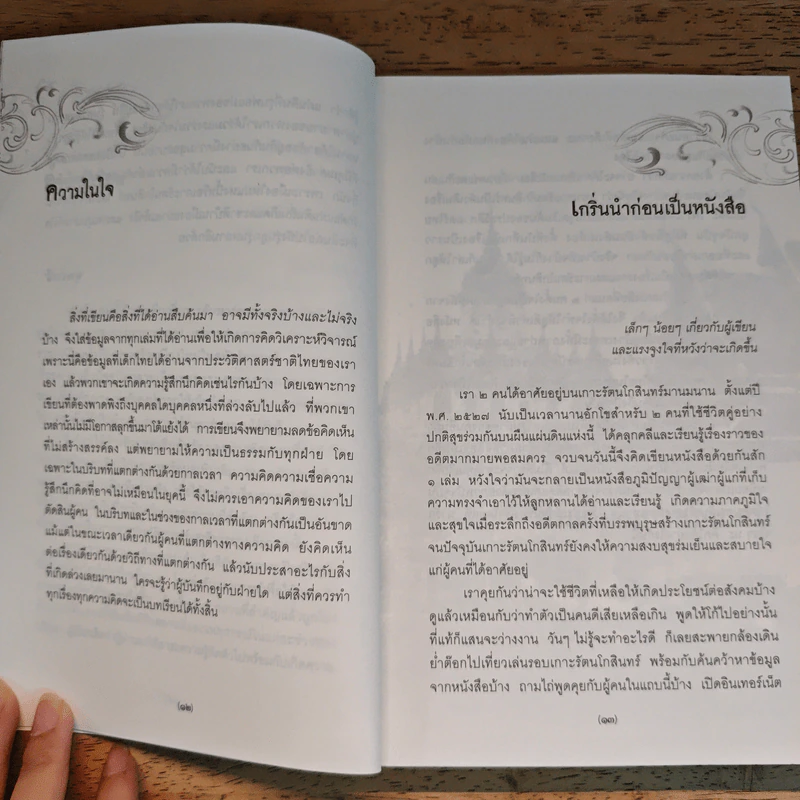 ความในใจ
สิ่งที่เขียนคือสิ่งที่ได้อ่านสืบค้นมา อาจมีทั้งจริงบ้างและไม่จริง
บ้าง จึงใส่ข้อมูลจากทุกเล่มที่ได้อ่านเพื่อให้เกิดการคิดวิเคราะห์วิจารณ์
เพราะนี่คือข้อมูลที่เด็กไทยได้อ่านจากประวัติศาสตร์ชาติไทยของเรา
เอง แล้วพวกเขาจะเกิดความรู้สึกนึกคิดเช่นไรกันบ้าง โดยเฉพาะการ
เขียนที่ต้องพาดพิงถึงบุคคลใดบุคคลหนึ่งที่ล่วงลับไปแล้ว ที่พวกเขา
เหล่านั้นไม่มีโอกาสลุกขึ้นมาโต้แย้งได้ การเขียนจึงพยายามลดข้อคิดเห็น
ที่ไม่สร้างสรรค์ลง แต่พยายามให้ความเป็นธรรมกับทุกฝ่าย โดย
เฉพาะในบริบทที่แตกต่างกันด้วยกาลเวลา ความคิดความเชื่อความ
รู้สึกนึกคิดที่อาจไม่เหมือนในยุคนี้ จึงไม่ควรเอาความคิดของเราไป
ตัดสินผู้คน ในบริบทและในช่วงของกาลเวลาที่แตกต่างกันเป็นอันขาด
แม้แต่ในขณะเวลาเดียวกันผู้คนที่แตกต่างทางความคิด ยังคิดเห็น
ต่อเรื่องเดียวกันด้วยวิถีทางที่แตกต่างกัน แล้วนับประสาอะไรกับสิ่ง
ที่เกิดล่วงเลยมานาน ใครจะรู้ว่าผู้บันทึกอยู่กับฝ่ายใด แต่สิ่งที่ควรทำ
ทุกเรื่องทุกความคิดจะเป็นบทเรียนได้ทั้งสิ้น
(๑๒)
เกริ่นนำก่อนเป็นหนังสือ
เล็กๆ น้อยๆ เกี่ยวกับผู้เขียน
และแรงจูงใจที่หวังว่าจะเกิดขึ้น
เรา ๒ คนได้อาศัยอยู่บนเกาะรัตนโกสินทร์มานมนาน ตั้งแต่ปี
พ.ศ. ๒๕๒๗ นับเป็นเวลานานอักโขสำหรับ ๒ คนที่ใช้ชีวิตคู่อย่าง
ปกติสุขร่วมกันบนผืนแผ่นดินแห่งนี้ ได้คลุกคลีและเรียนรู้เรื่องราวของ
อดีตมากมายพอสมควร จวบจนวันนี้จึงคิดเขียนหนังสือด้วยกันสัก
๑ เล่ม หวังใจว่ามันจะกลายเป็นหนังสือภูมิปัญญาผู้เฒ่าผู้แก่ที่เก็บ
ความทรงจำเอาไว้ให้ลูกหลานได้อ่านและเรียนรู้ เกิดความภาคภูมิใจ
และสุขใจเมื่อระลึกถึงอดีตกาลครั้งที่บรรพบุรุษสร้างเกาะรัตนโกสินทร์
จนปัจจุบันเกาะรัตนโกสินทร์ยังคงให้ความสงบสุขร่มเย็นและสบายใจ
แก่ผู้คนที่ได้อาศัยอยู่
เราคุยกันว่าน่าจะใช้ชีวิตที่เหลือให้เกิดประโยชน์ต่อสังคมบ้าง
ดูแล้วเหมือนกับว่าทำตัวเป็นคนดีเสียเหลือเกิน พูดให้โก้ไปอย่างนั้น
ที่แท้ก็แสนจะว่างงาน วันๆ ไม่รู้จะทำอะไรดี ก็เลยสะพายกล้องเดิน
ย่ำต๊อกไปเที่ยวเล่นรอบเกาะรัตนโกสินทร์ พร้อมกับค้นคว้าหาข้อมูล
จากหนังสือบ้าง ถามไถ่พูดคุยกับผู้คนในแถบนี้บ้าง เปิดอินเทอร์เน็ต
(๑๓)